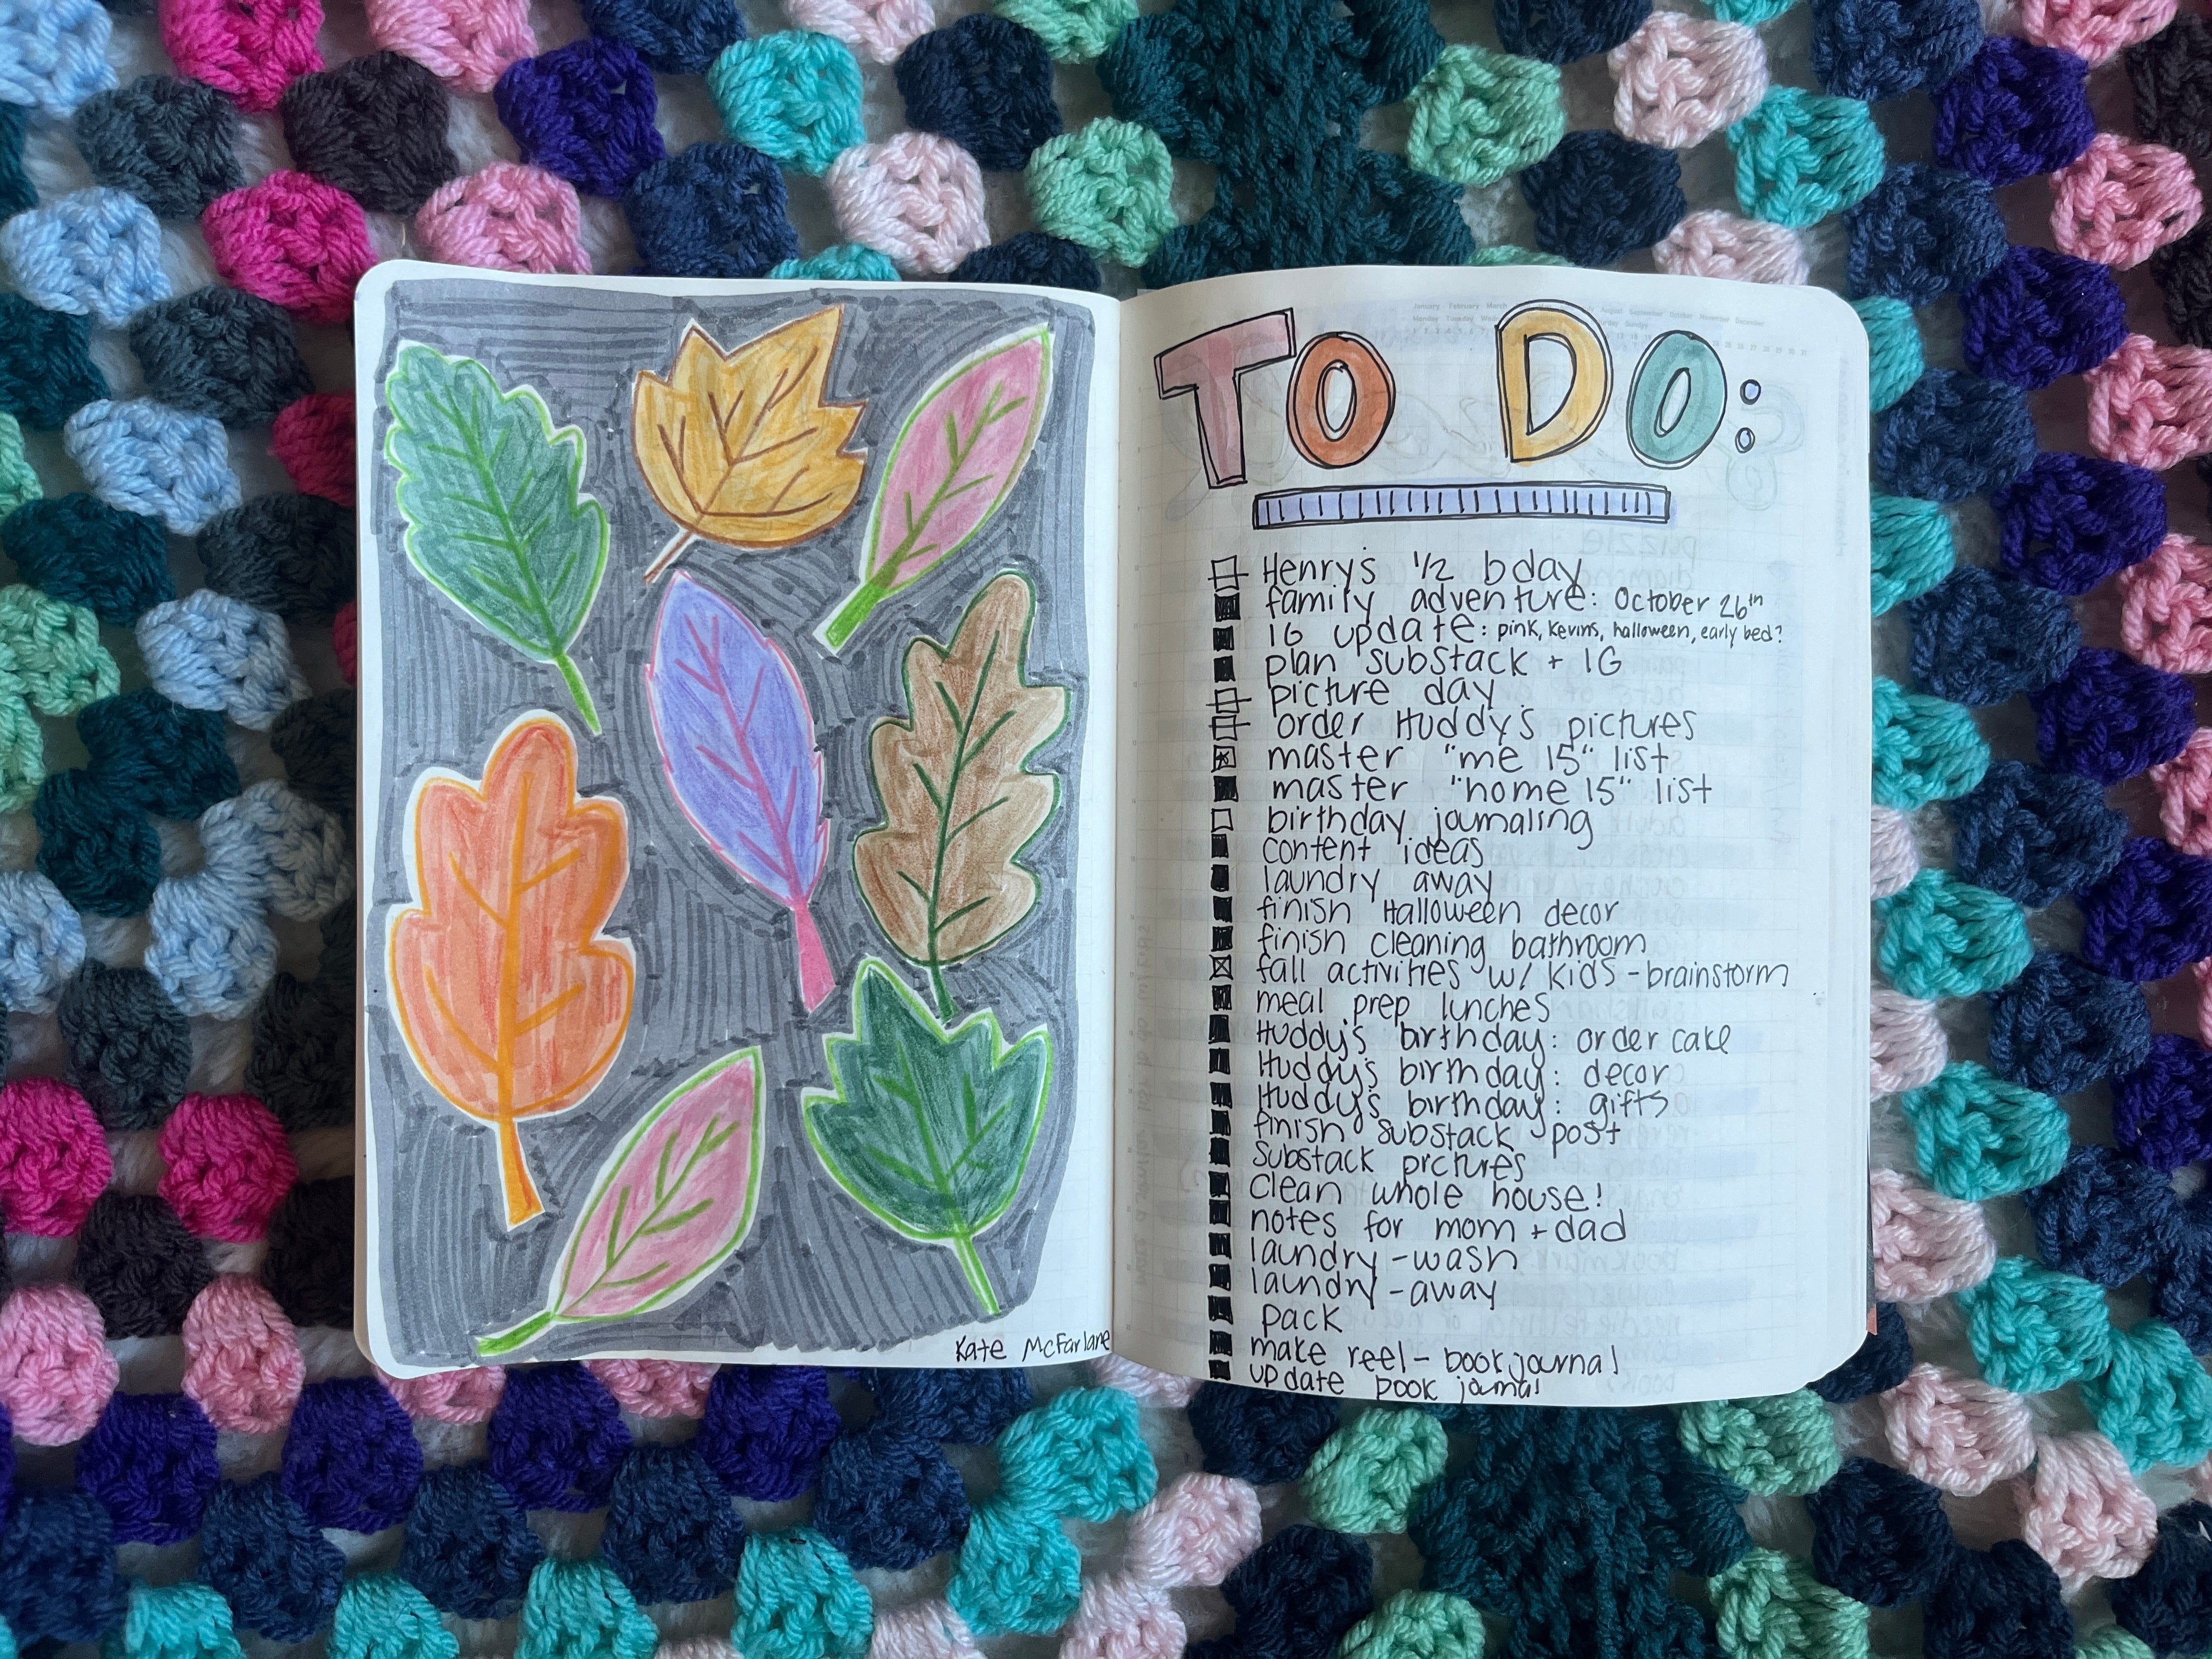 Kate McFarlane
TO DO:
Henry's 1/2 bday
family adventure: October 26th
IG update: pink, Kevins, halloween, early bed?
plan substack + IG
picture day
order Huddy's pictures
master "me 15" list
master "home 15" list
birthday journaling
content ideas
laundry away
finish Halloween decor
finish cleaning bathroom
fall activities w/ kids - brainstorm
meal prep lunches
Huddy's birthday: order cake
Huddy's birthday: decor
Huddy's birthday: gifts
finish substack post
Substack pictures
clean whole house!
notes for mom + dad
laundry - wash
laundry - away
pack
make reel - book journal
update book journal